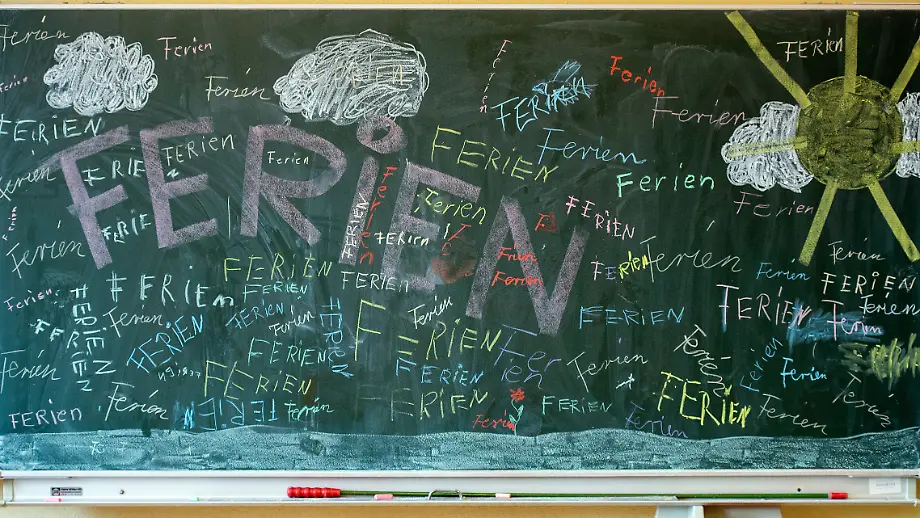 Ferien
Ferien
Ferien
FERIEN
Ferien
FERIEN
Ferien
Ferien
FERIEN
FERIEN
FERIEN
Ferien
FERIEN
Ferien
FERIEN
Ferien
Ferien
Ferien
Ferien
Ferien
FERIEN
FERIEN
Ferien
FERIEN
Ferien
Ferien
FERIEN
FERIEN
Ferien
FERIEN
Ferien
FERIEN
FERIEN
FERIEN
Ferien
FERIEN
Ferien
FERIEN
FERIEN
Ferien
Ferien
FERIEN
Ferien
FERIEN
FERIEN
Ferien
FERIEN
Ferien
Ferien
Ferien
Ferien
FERIEN
FERIEN
FERIEN
Ferien
Ferien
FERIEN
Ferien
FERIEN
Ferien
FERIEN
Ferien
FERIEN
FERIEN
Ferien
Ferien
Ferien